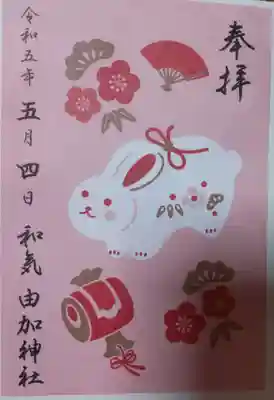 奉拝
令和五年 五月四日 和氣 由加神社